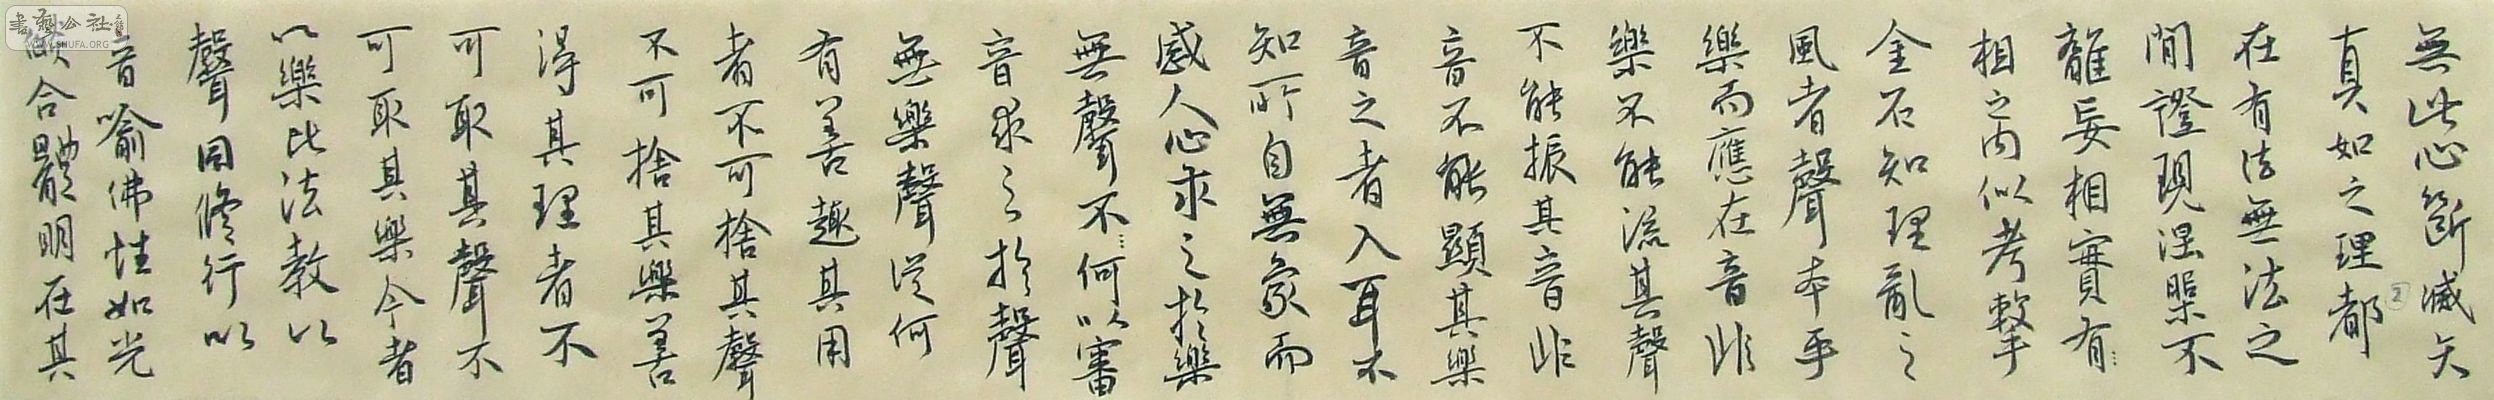 無此心斷滅矢
真如之理都
在有法無法之
間證現涅槃不
離妄相實有
相之内似考擊
金石知理亂之
風者聲本乎
樂而應在音非
樂不能流其聲
不能振其音非
音不能顯其樂
音之者入耳不
知所自無象而
感人心求之於樂
無聲不何以審
音求之於聲
無樂聲從何
有善趣其用
者不可捨其聲
不可捨其樂善
得其理者不
可取其聲不
可取其樂今者
以樂比法教以
聲同修行以
音喻佛性如光
合體明在其
書藝公社
WWW.SHUFA.ORG